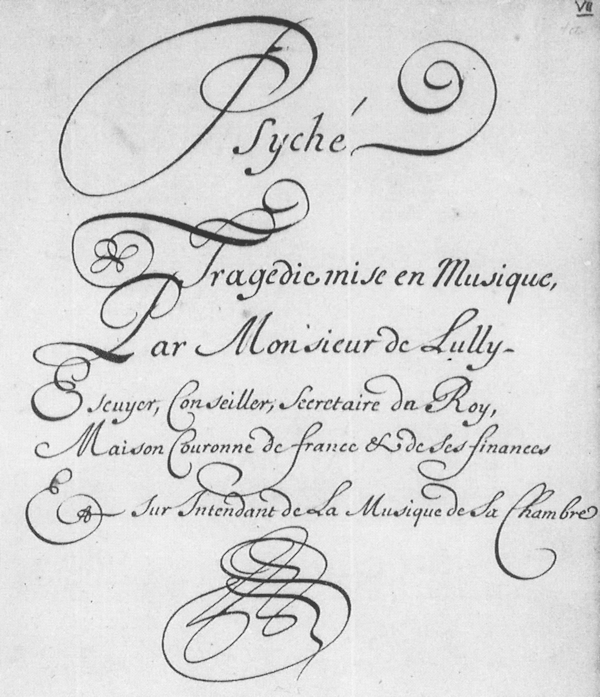 VII
Psyché
Tragedie mise en Musique,
Par Monsieur de Lully
Escuyer, Conseiller, Secretaire du Roy,
Maison Couronne de france & de ses finances
Et Sur Intendant de La Musique de Sa Chambre